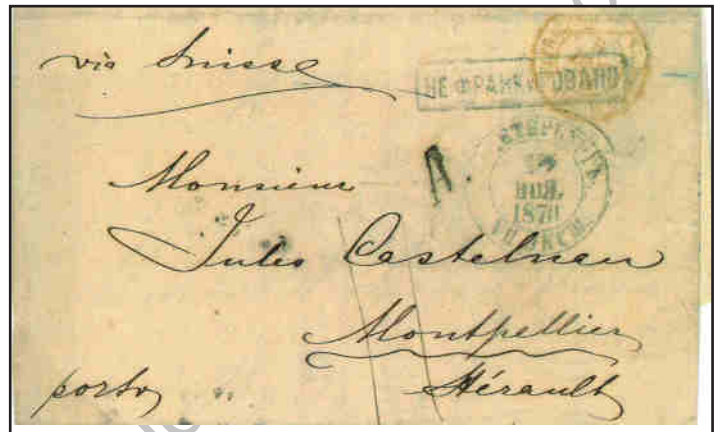 via Suisse
НЕ ФРАНКИРОВАНО
Monsieur
НОЯ.
1870
Jules Castelnau
Montpellier
Hérault
porto